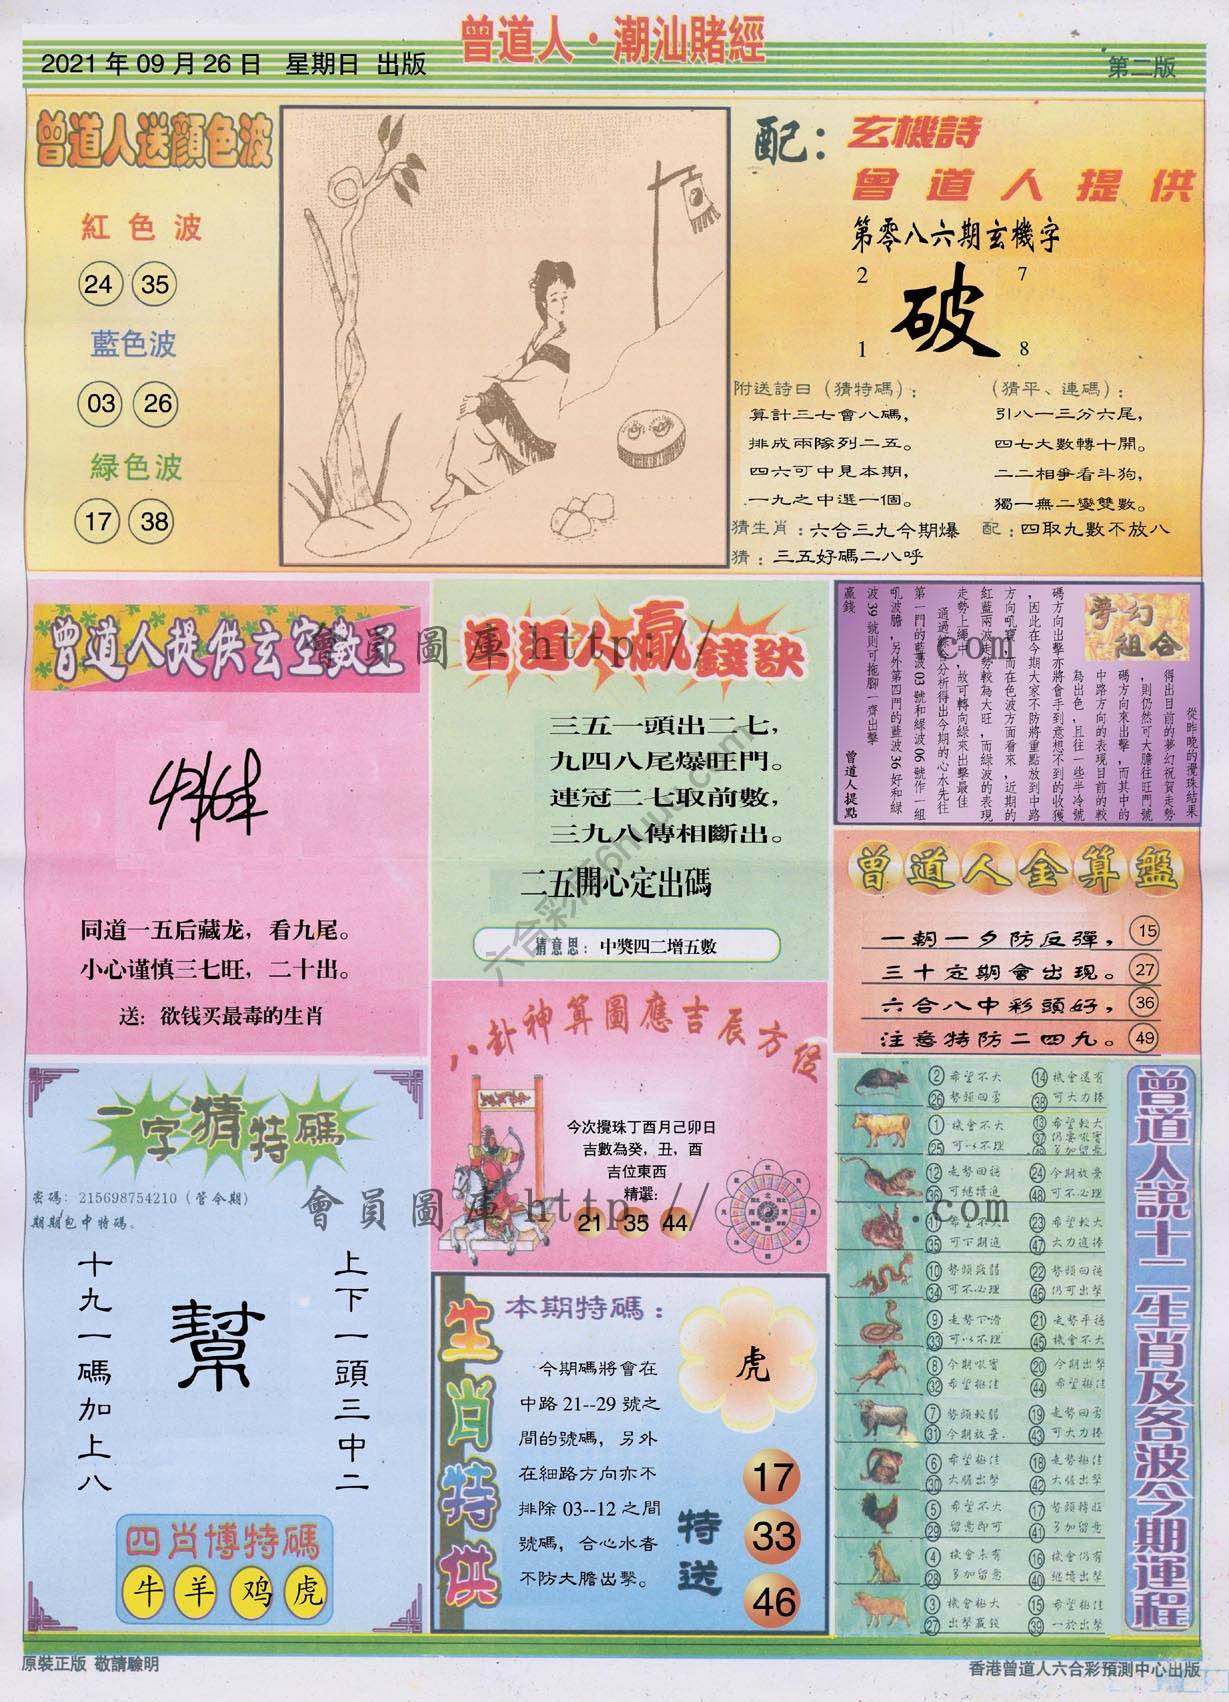 曾道人·潮汕賭經
2021年09月26日 星期日 出版
第二版
曾道人送顏色波
紅色波
24 35
藍色波
03 26
緑色波
17 38
配：玄機詩
曾道人提供
第零八六期玄機字
2 7
破
1 8
附送詩曰（猜特碼）：
算計三七會八碼，
排成兩隊列二五。
四六可中見本期，
一九之中選一個。
（猜平、連碼）：
引八一三分六尾，
四七大數轉十開。
二二相爭看斗狗，
獨一無二變雙數。
猜生肖：六合三九今期爆
配：四取九數不放八
猜：三五好碼二八呼
曾道人提供玄空數王
同道一五后藏龙，看九尾。
小心谨慎三七旺，二十出。
送：欲钱买最毒的生肖
曾道人贏錢訣
三五一頭出二七，
九四八尾爆旺門。
連冠二七取前數，
三九八傳相斷出。
二五開心定出碼
猜意思：中獎四二增五數
夢幻
組合
從昨晚的攪珠結果
得出目前的夢幻祝賀走勢
，則仍然可大膽往旺門號
碼方向來出擊，而其中的
中路方向的表現目前的較
為出色，且往一些半冷號
碼方向出擊亦將會手到意想不到的收獲
，因此在今期大家不防將重點放到中路
方向吼寶，而在色波方面看來，近期的
紅藍兩波走勢較為大旺，而綠波的表現
走勢上繩中，故可轉向綠來出擊最佳
通過綜合分析得出今期的心水先往
第一門的藍波03號和綠波06號作一組
吼波膽，另外第四門的藍波36好和綠
波39號則可拖腳一齊出擊
贏錢
曾道人提點
曾道人金算盤
一朝一夕防反彈， 15
三十定期會出現。 27
六合八中彩頭好， 36
注意特防二四九。 49
八卦神算圖應吉辰方位
今次攪珠丁酉月己卯日
吉數為癸，丑，酉
吉位東西
精選:
21 35 44
一字猜特碼
密碼：215698754210（管令期）
期期包中特碼。
上下一頭三中二
幫
十九一碼加上八
四肖博特碼
牛 羊 鸡 虎
生肖特供
本期特碼：
虎
今期碼將會在
中路21--29號之
間的號碼，另外
在細路方向亦不
排除03--12之間
號碼，合心水者
不防大膽出擊。
特送
17
33
46
曾道人説十二生肖及各波今期運程
② 希望不大 ⑭ 機會還有
㉖ 勢頭回勇 ㊳ 可大力捧
① 機會不大 ⑬ 希望較大
㉕ 可以不理 多加留意
⑫ 走勢回穩 ㉔ 今期放棄
㊱ 可繼續進 ㊽ 可不必理
⑪ 希望不大 ㉓ 希望較大
㉟ 可下期進 ㊼ 大力進捧
⑩ 勢頭減弱 ㉒ 勢頭回穩
㉞ 可不必理 ㊻ 仍可出擊
⑨ 走勢下滑 ㉑ 走勢平穩
㉝ 可以不理 ㊺ 機會不大
⑧ 今期吼實 ⑳ 今期出擊
㉜ 希望極佳 ㊹ 希望極佳
⑦ 勢頭較弱 ⑲ 走勢回勇
㉛ 今期放棄 ㊸ 可大力捧
⑥ 希望極佳 ⑱ 走勢極佳
㉚ 大膽出擊 ㊷ 大膽出擊
⑤ 希望不大 ⑰ 勢頭轉旺
㉙ 留意即可 ㊶ 多加留意
④ 機會未有 ⑯ 機會仍有
㉘ 多加留意 ㊵ 繼續出擊
③ 機會極大 ⑮ 希望極佳
㉗ 出擊贏錢 ㊴ 一於出擊
原裝正版 敬請驗明
香港曾道人六合彩預測中心出版
會員圖庫 http:// .com
會員圖庫 http:// .com